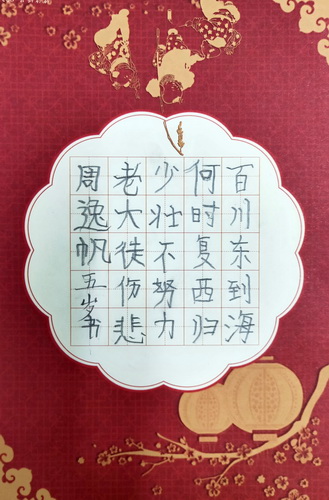 百川东到海
何时复西归
少壮不努力
老大徒伤悲
周逸帆五岁书